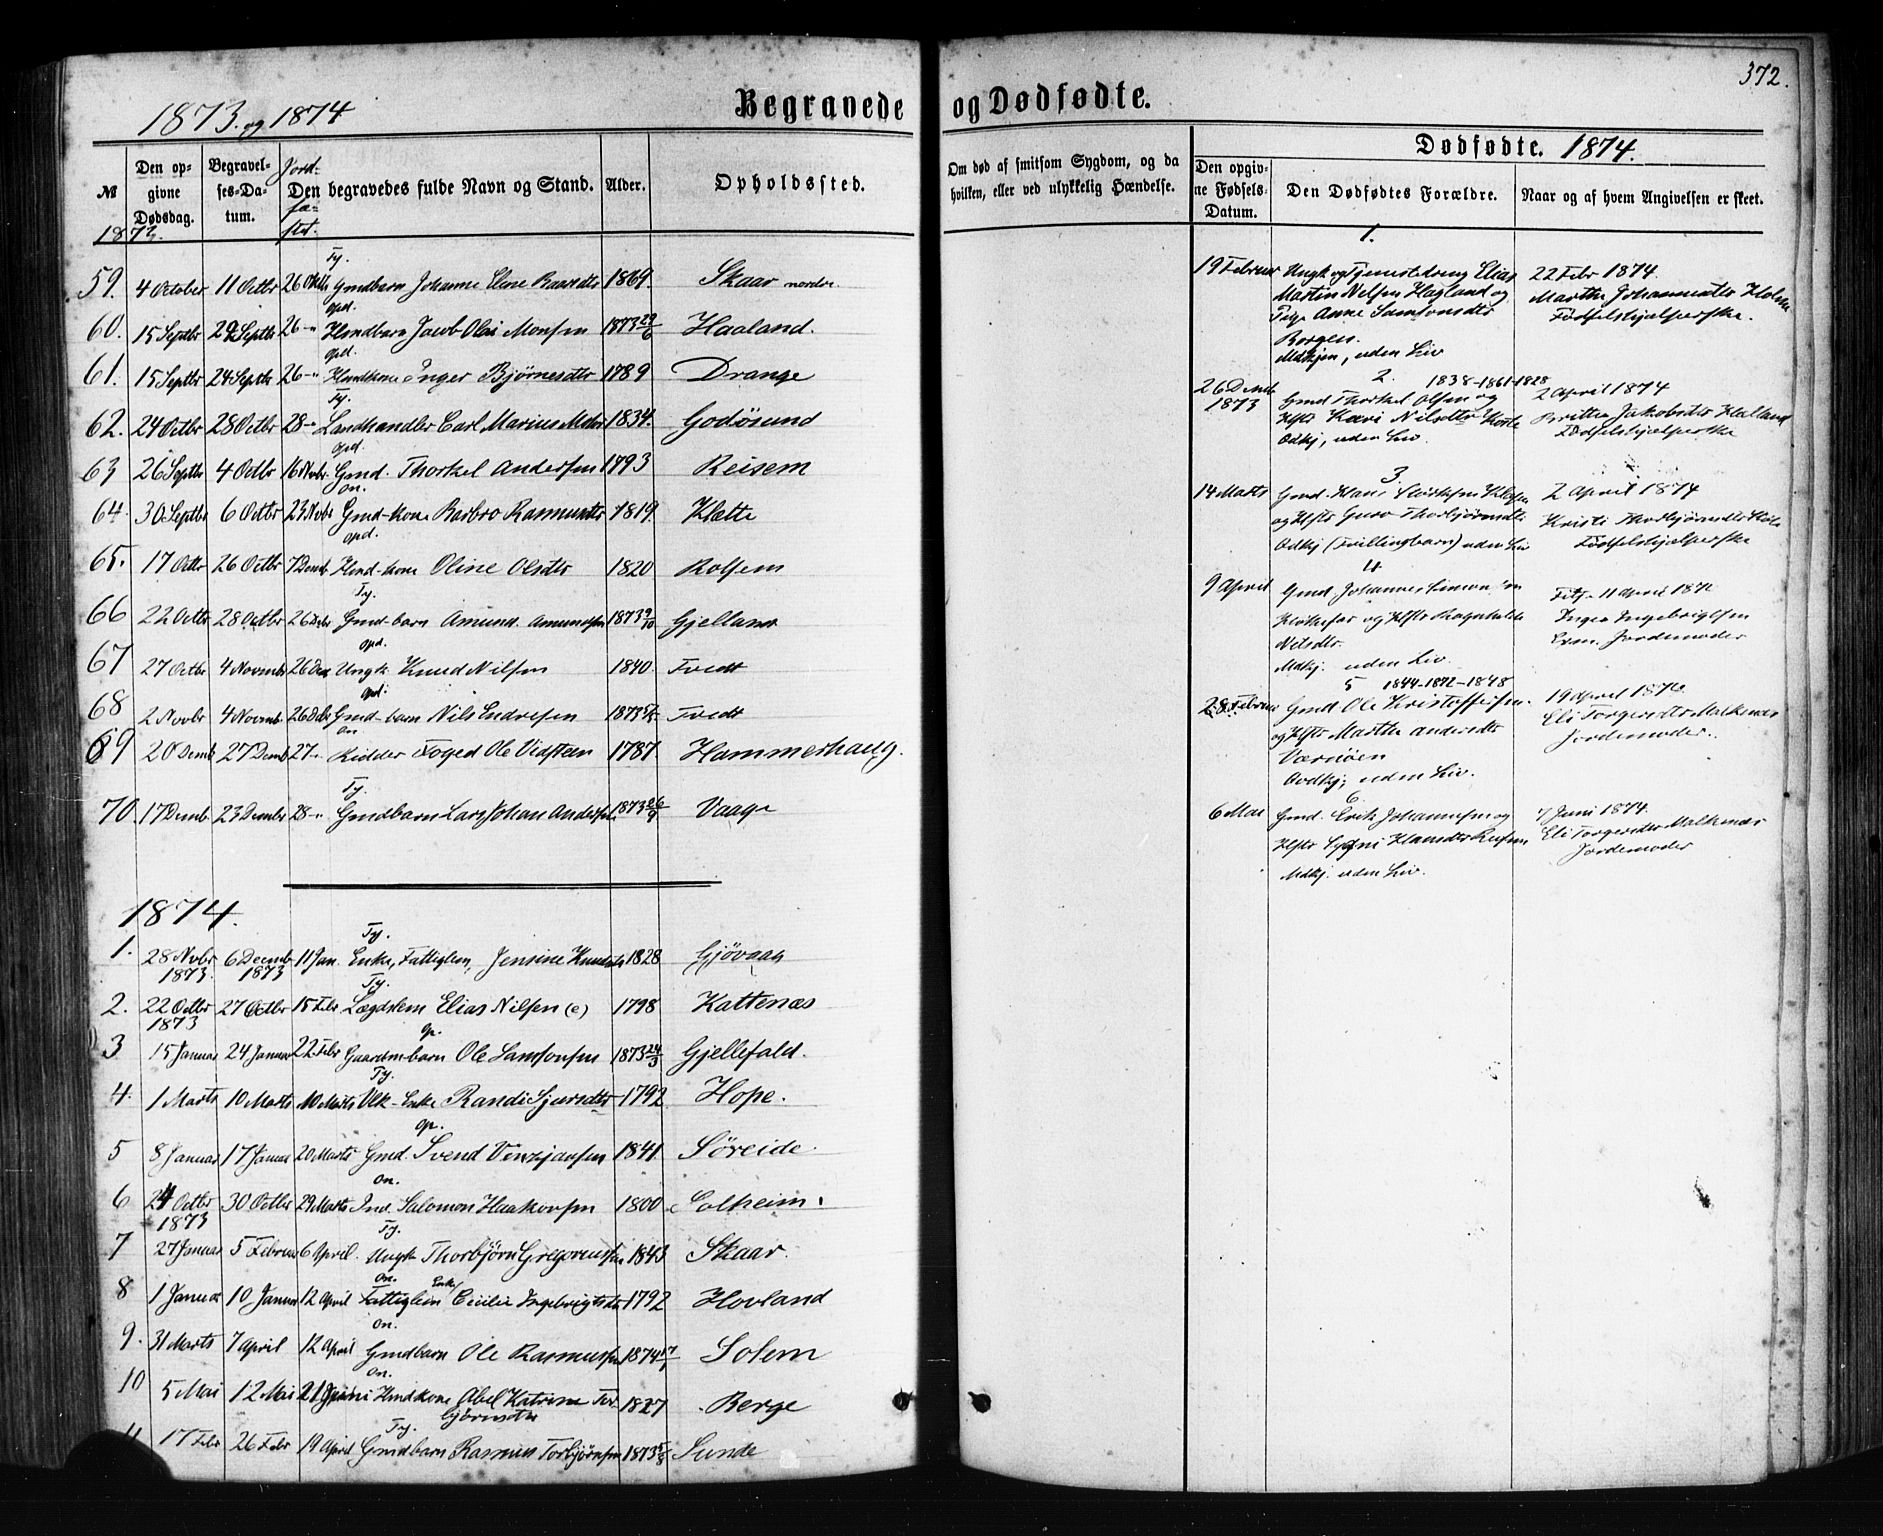 1873. og 1874
Begravede
№
Den opgivne Dødsdag.
Begravelses-Datum.
Jordfæstet.
Den begravedes fulde Navn og Stand.
Alder.
Opholdssted.
1873.
Ty.
59. 4 October 11 Octbr 26 Gmdbarn Johanne Eline Baardsdtr 1869. Skaar nordre
Opd.
60. 15 Septbr 29 Septbr 26 -"- Hmdbarn Jacob Olai Monsen 1873 29/6 Haaland.
Opd.
61. 15 Septbr 24 Septbr 26 -"- Hmdkone Inger Bjørnesdtr 1789 Drange
Ty.
62. 24 Octbr 28 Octbr 28 -"- Landhandler Carl Marius 1834. Godøsund
Opd.
63 26 Septbr 4 Octbr 16 Novbr. Gmd. Thorkel Andersen 1793 Reisem
On.
64. 30 Septbr 6 Octbr 23 Novbr Gmd-kone Barbro Rasmusdtr 1819. Klette
Opd.
65. 17 Octbr 26 Octbr 7 Decmb. Hmd-kone Oline Olsdtr 1820 Rolsem
Ty.
66 22 Octbr 28 Octbr 26 Dcbr Gmd-barn Amund Amundsen 1873 9/10 Gjelland
Opd.
67 27 Octbr 4 Novmb 26 Dec Ungk Knud Nilsen 1840. Tvedt
Opd.
68 2 Novbr 4 Novmb. 26 Dcbr Gmd-barn Nils Endresen 1873 Tvedt
On
69 20 Decmb 27 Decmb 27 -"- Ridder Foged Ole Vidsteen 1787 Hammerhaug.
Ty.
70. 17 Decmb. 23 Decmbr 28 -"- Gmdbarn Lars Johan Andersen 1873 26/9 Vaage
1874.
Ty.
1. 28 Novbr 6 Decemb 11 Jan. Enke, Fattiglem, Jensine Knudsdtr 1828 Gjøvaag
1873. 1873
Ty.
2. 22 Octbr 27 Octbr 15 Febr Lægdslem Elias Nilsen (e) 1798 Kattenæs
1873
Op.
3 15 Januar 24 Januar 22 Febr Gaardmbarn Ole Samsonsen 1873 24/3 Gjellefald.
Ty.
4. 1 Marts 10 Marts 10 Marts Vlk-Enke Randi Sjursdtr 1792 Hope.
Op.
5 8 Januar 17 Januar 20 Marts Gmd. Svend Vinzjansen 1841 Søreide.
On.
6 24 Octbr 30 Octbr 29 Marts Ind. Salomon Haakonsen 1800 Solheim.
1873
Ty.
7 27 Januar 5 Februar 6 April. Ungk Thorbjørn Gregoriussen 1843 Skaar.
On. Enke
8 1 Januar 10 Januar 12 April Fattiglem Cecilie Ingebrigtsdtr 1792 Hovland
On.
9. 31 Marts 7 April 12 April Gmdbarn Ole Rasmussen 1874 17/1 Solem
On.
10 5 Mai 12 Mai 21 Juni Hmdkone Abel Katrine Tor- 1827 Berge
bjørnsdtr
Ty.
11 17 Febr 26 Febr 19 April Gmdbarn Rasmus Torbjørnsen 1873 5/8 Sunde
372.
og Dødfødte.
Om død af smitsom Sygdom, og da hvilken, eller ved ulykkelig Hændelse.
Dødfødte. 1874.
Den opgivne Fødsels-Datum.
Den Dødfødtes Forælдre.
Naar og af hvem Angivelsen er skeet.
1.
19 Februar Ungk og Tjenestedreng Elias 22 Febr 1874.
Martin Nilsen Hagland og Martha Johannesdtr Holm
Pige Anne Samsonsdtr Fødselshjælperske.
Borgen.
Mdkjøn, uden Liv
2. 1838-1861-1828
26 Decmb 1873 Gmd Thorkel Olsen og 2 April 1874
Hstr Kari Nilsdtr Britha Jakobsdtr Halland
Qdkj, uden Liv. Fødselshjælperske
3.
14 Marts Gmd. Hans 2 April 1874
og Hstr Guro Thorbjørnsdtr Kristi Thorbjørnsdtr
Qdkj (Tvillingbarn) uden Liv Fødselshjælperske
4
9 April Gmd Johannes Simonsen
og Hstr Ragnhilde Inger Ingebrigtsen
Nilsdtr. Exm. Jordemoder
Mdkj. uden Liv.
5 1844-1872-1848
28 Februar Gmd Ole Kristoffersen 19 April 1874
og Hstr Martha Andersdtr Eli Torgersdtr Malkenæs
Værnøen Jordemoder.
Qvdkj, uden Liv.
6
6 Mai Gmd. Erik Johannesen og 7 Juni 1874.
Hstr Sygni Hansdtr Reisem Eli Torgersdtr Malkenæs
Mdkj. uden Liv. Jordemoder